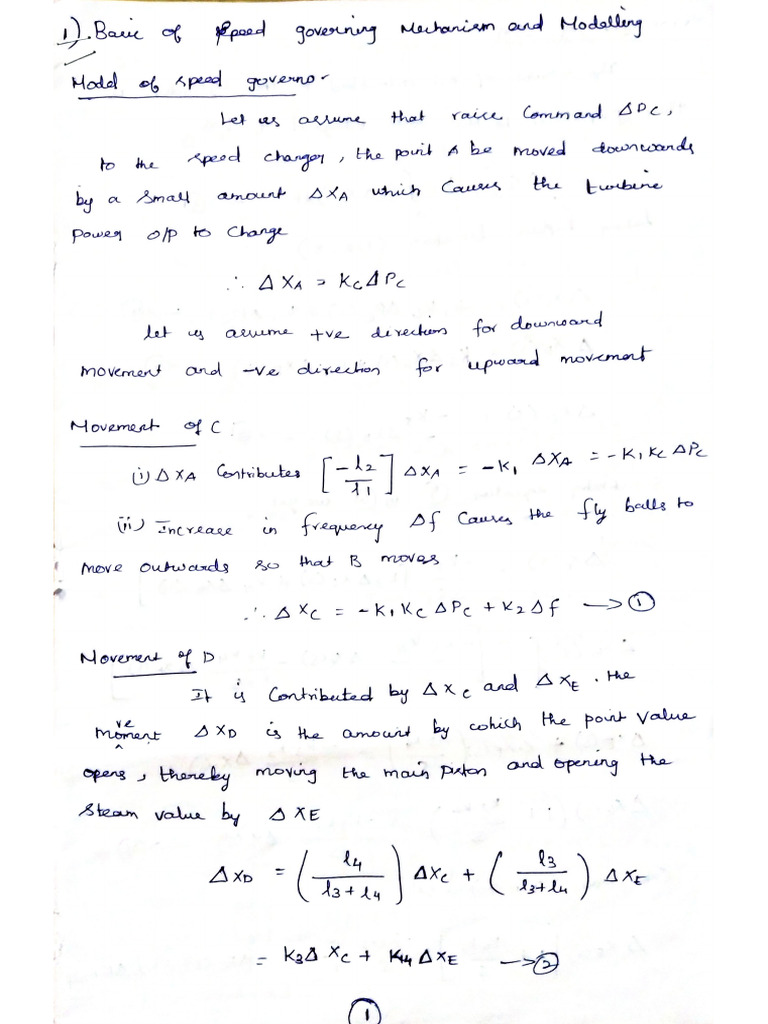 1). Basic of Speed governing Mechanism and Modelling
Model of speed governor
Let us assume that raise Command ΔPc,
to the speed changer, the point A be moved downwards
by a small amount ΔXA which causes the turbine
Power o/p to change
∴ ΔXA = KcΔPc
Let us assume +ve direction for downward
movement and -ve direction for upward movement
Movement of C:
(i) ΔXA Contributes [-l2/l1] ΔXA = -K1 ΔXA = -K1 Kc ΔPc
(ii) Increase in frequency Δf Causes the fly balls to
move outwards so that B moves.
∴ ΔXC = -K1 Kc ΔPc + K2 Δf → ①
Movement of D
It is Contributed by ΔXC and ΔXE. the
movement ΔXD is the amount by which the point Value
opens, thereby moving the main piston and opening the
Steam value by ΔXE
ΔXD = (l4/(l3+l4)) ΔXC + (l3/(l3+l4)) ΔXE
= K3Δ XC + K4 ΔXE → ②
①